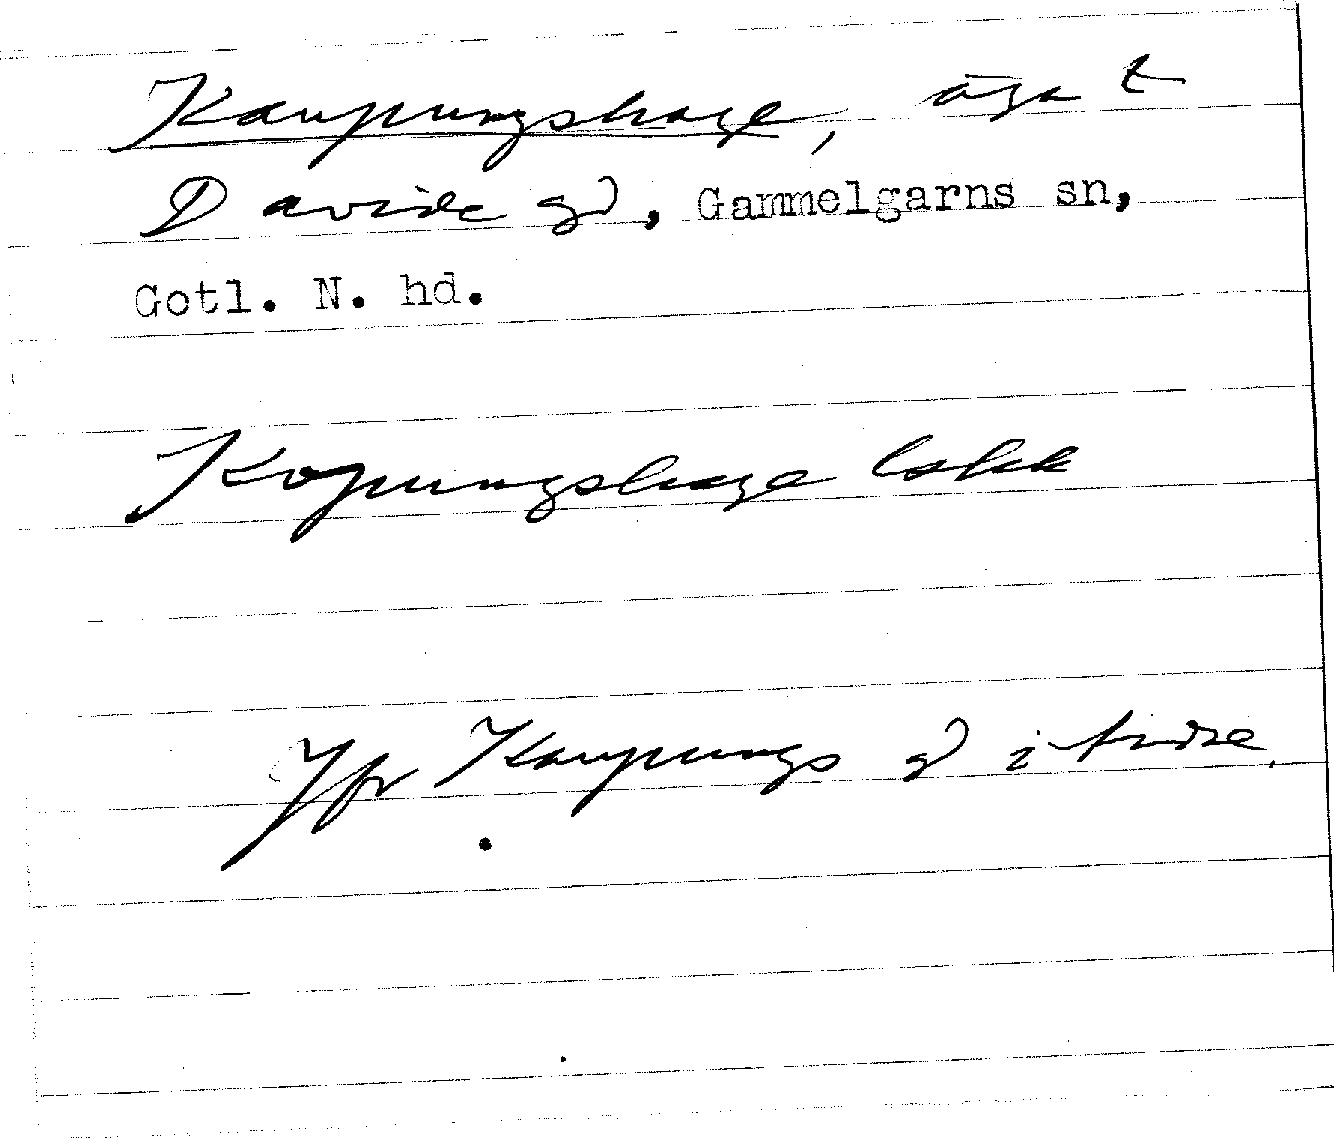 Kaupungshage, äga t
Davide gd, Gammelgarns sn,
Gotl. N. hd.
Kopungshage lakk
Jfr Kaupungs gd i Ardre.